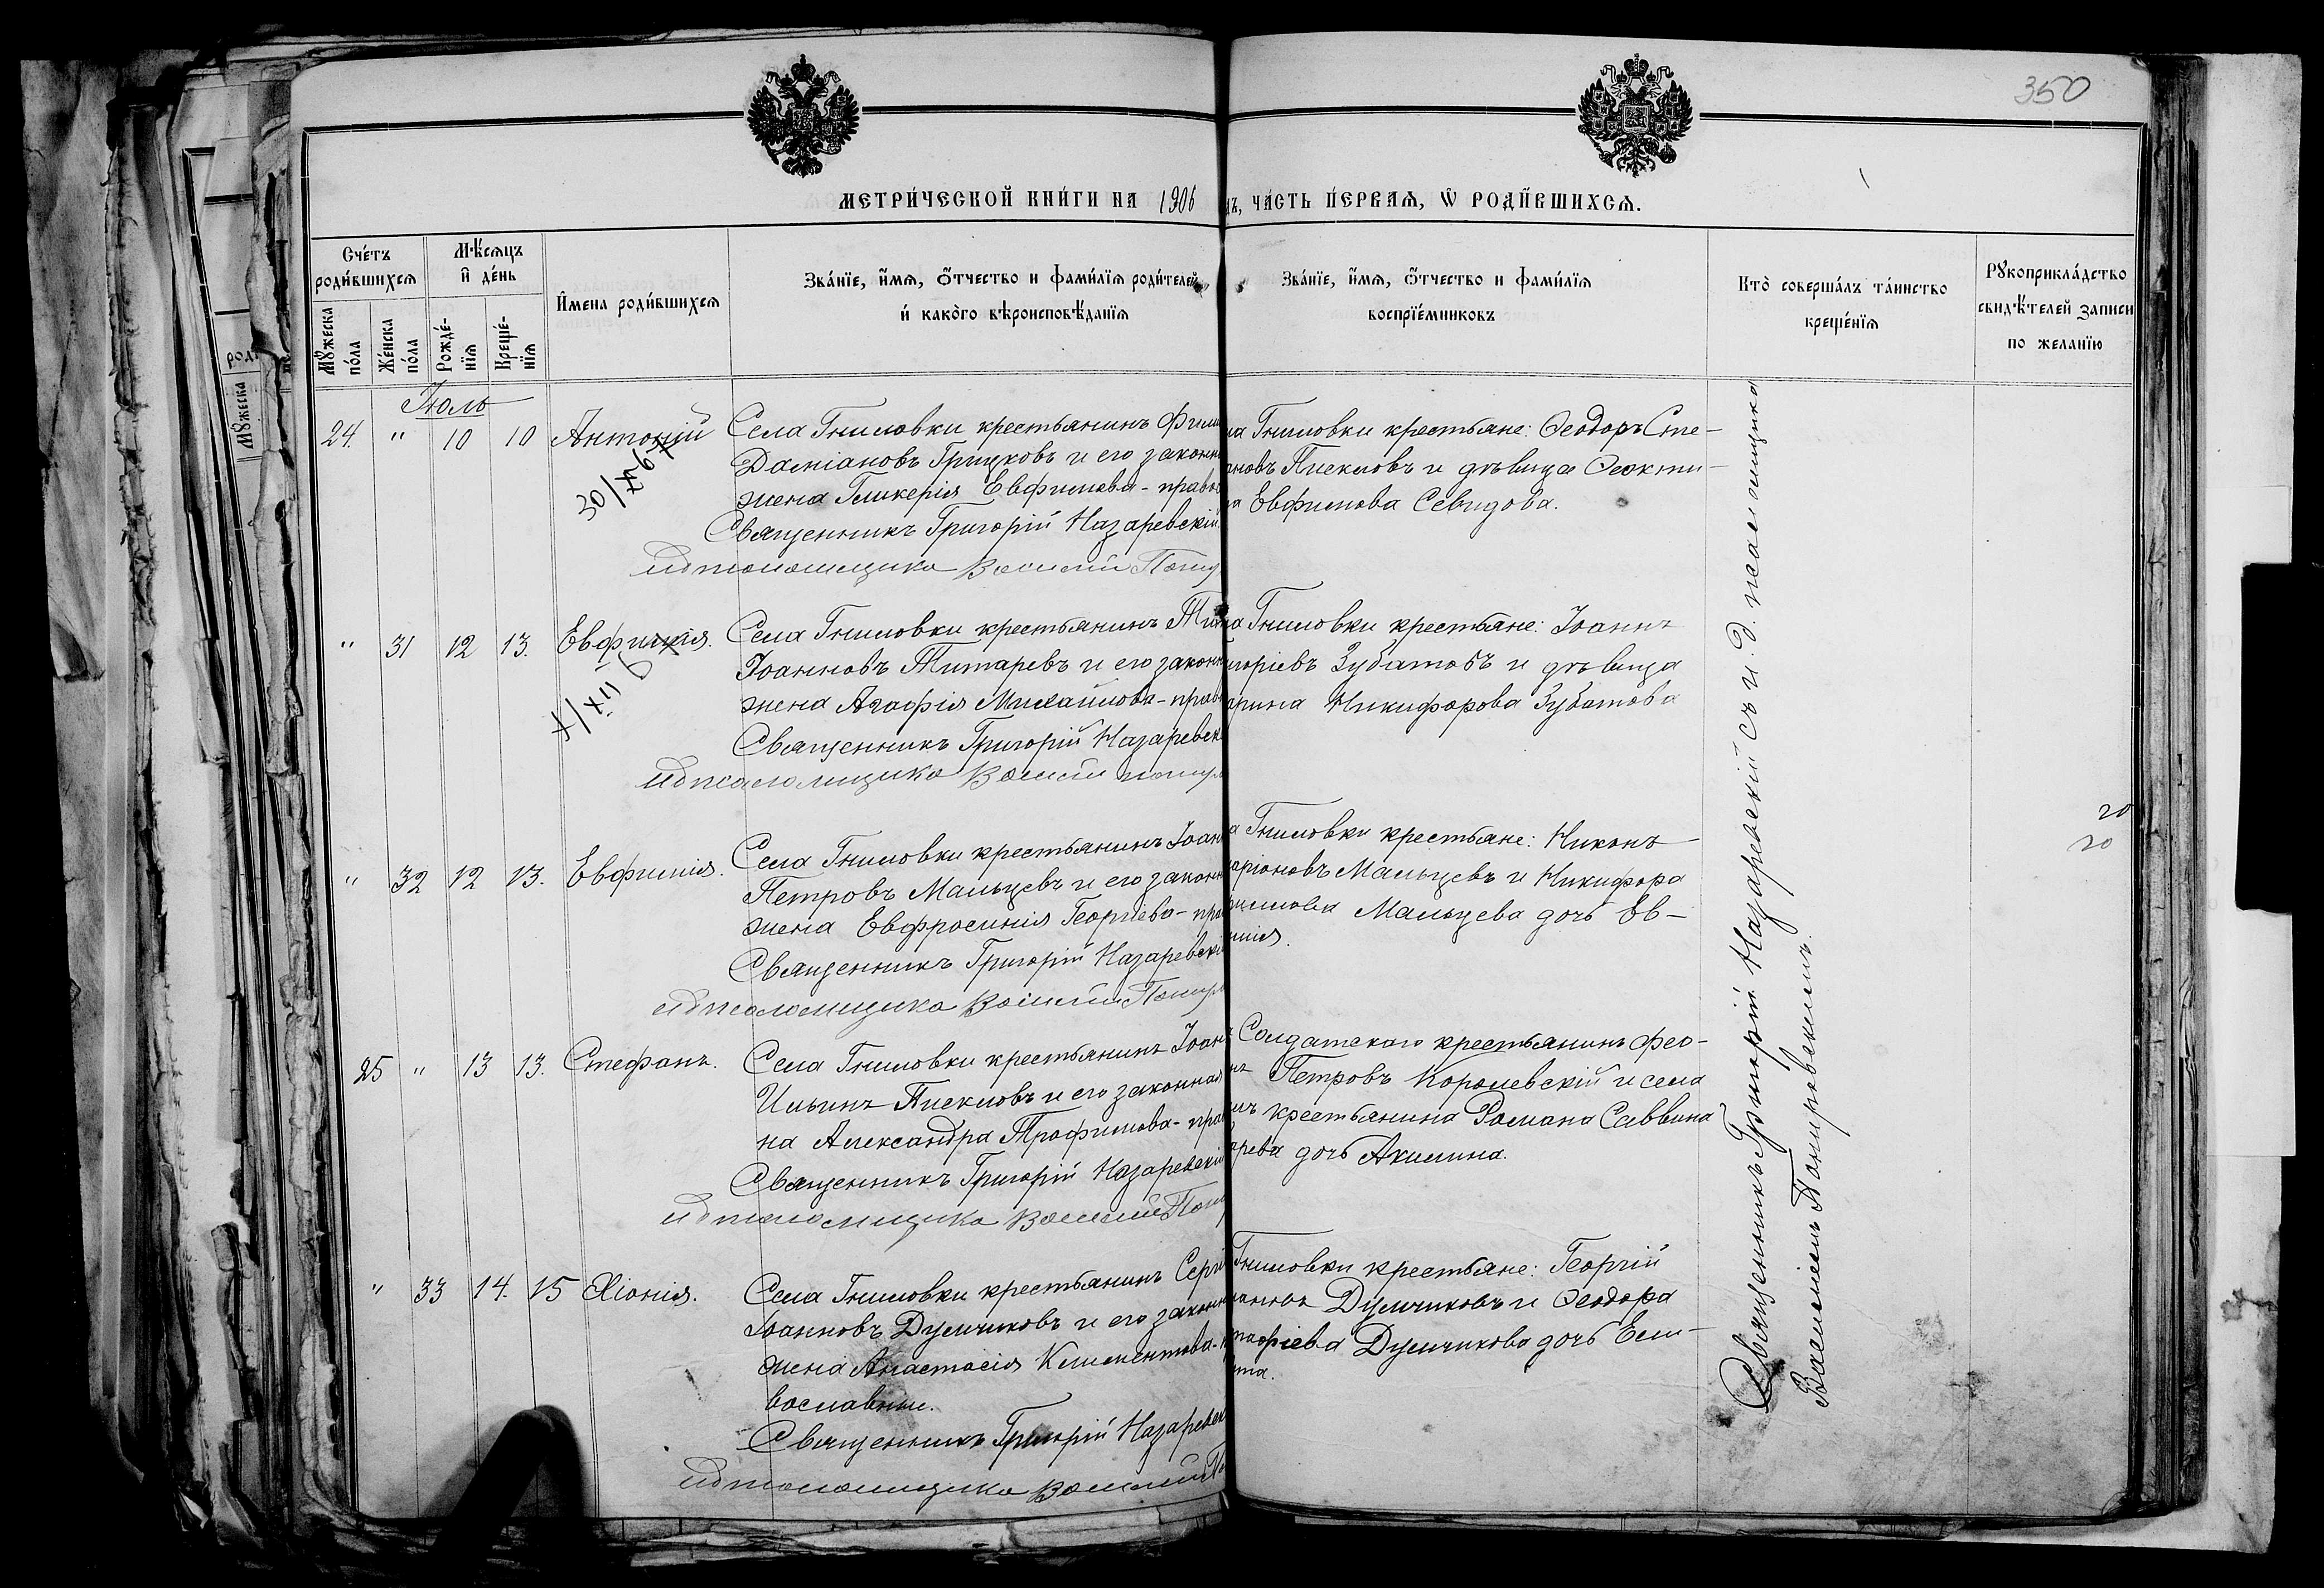 350
МЕТРИ́ЧЕСКОЙ КНИ́ГИ НА 1906
ЧА́СТЬ ПЕ́РВАЯ, Ѡ РОДИ́ВШИХСЯ.
Сче́тъ
роди́вшихся
Мꙋ́жеска
по́ла
Же́нска
по́ла
Мѣ́сяцъ
и де́нь
Рожде́-
нїя
Креще́-
нїя
И́мена роди́вшихся
Зва́нїе, и́мя, о́тчество и фами́лїя роди́телей,
и како́го вѣроисповѣ́данїя
Зва́нїе, и́мя, о́тчество и фами́лїя
воспрїе́мниковъ
Кто̀ соверша́лъ та́инство
креще́нїя
Рꙋкоприкла́дство
свидѣ́телей записи
по жела́нїю
Іюль
24. " 10 10 Антоній
Села Гниловки крестьянинъ
Даміановъ Грицковъ и его законн
жена Гликерія Евфимова - право
Священникъ Григорій Назаревскій
ид псаломщика Василій
Гниловки крестьяне: Ѳеодоръ Сте-
ановъ Пиекловъ и дѣвица Ѳеокти-
Евфимова Севидова.
" 31 12 13. Евфимія.
Села Гниловки крестьянинъ
Іоанновъ Титаревъ и его законн
жена Агафія Михайлова - прав
Священникъ Григорій Назаревск
ид псаломщика Василій
Гниловки крестьяне: Іоаннъ
игоріевъ Зубатовъ и дѣвица
арина Никифорова Зубатова
" 32 12 13. Евфимія.
Села Гниловки крестьянинъ Іоан
Петровъ Мальцевъ и его законн
жена Евфросинія Георгіева - пра
Священникъ Григорій Назаревскі
ид псаломщика Василій
Гниловки крестьяне: Никонъ
аріоновъ Мальцевъ и Никифора
Мальцева дочь Ев-
имія.
20
20
25 " 13 13. Стефанъ.
Села Гниловки крестьянинъ Іоан
Ильинъ Пиекловъ и его законная
на Александра Трофимова - прав
Священникъ Григорій Назаревскій
ид псаломщика Василій
Солдатскаго крестьянинъ Ѳео-
Петровъ Королевскій и села
крестьянина Романа Саввина
арева дочь Акилина.
" 33 14. 15 Хіонія.
Села Гниловки крестьянинъ Серг
Іоанновъ Думчиковъ и его законн
жена Анастасія Климентова -
вославные.
Священникъ Григорій Назаревск
ид псаломщика Василій
Гниловки крестьяне: Георгій
Думчиковъ и Ѳеодора
Думчикова дочь Ели-
Священникъ Григорій Назаревскій съ и. д. псаломщика
Василіемъ Покировскимъ.